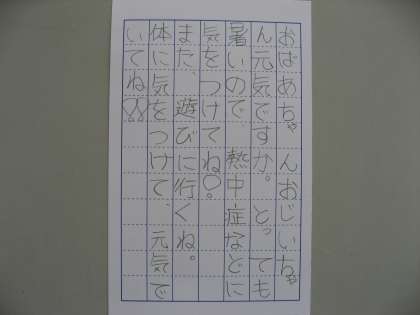 おばあちゃんおじいちゃ
ん元気ですか。とっても
暑いので 熱中症などに
気をつけてね!!
また、遊びに行くね。
体に気をつけて、元気で
いてね!!